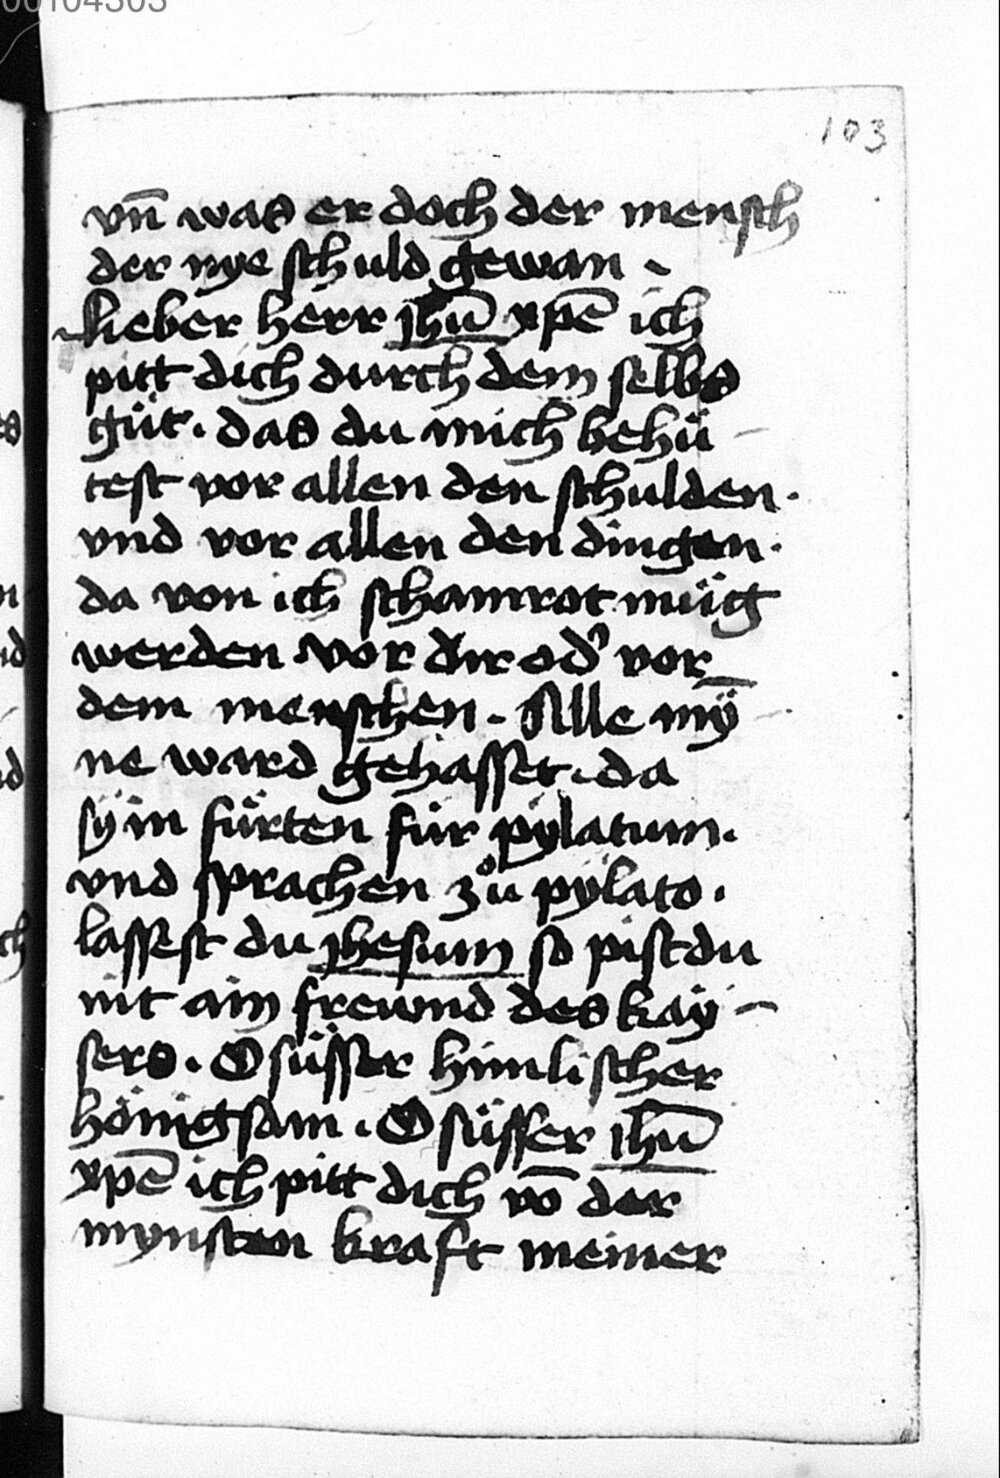 00104303
103
vn̄ was er doch der mensch
der nye schuld gewan ~
lieber herr jhū xp̄e ich
pitt dich durch dem selbs
güt. das du mich behü
test vor allen den schulden.
vnd vor allen den dingen.
da von ich schamrot müg
werden vor dir od' vor
dem menschen. Alle mȳ
ne ward gehasset. da
sÿ in fürten für pÿlatum.
vnd sprachen zů pÿlato.
lassest du jhesum so pist du
nit ain frewnd des kaÿ
sers. O süsser himlischer
hönigsam. O süsser jhū
xp̄e ich pitt dich vō der
mynsten kraft meiner